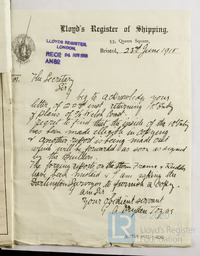 Lloyd's Register of Shipping.
53, Queen Square,
Bristol, 25th June 1918
LLOYDS REGISTER,
LONDON.
REC'D 26 JUN 1918
AN82
The Secretary
Sir,
I beg to acknowledge your
letter of 22nd inst. returning
of plans of
Regret to find that the inside of the
has been made illegible in copying
& another report is being made out
which will be forwarded as soon as signed
by the Builders.
The forging reports on the Stern Frame & Rudder
have been mislaid & I am asking the
Darlington Surveyor to furnish a copy.
I am Sir
Your obedient servant